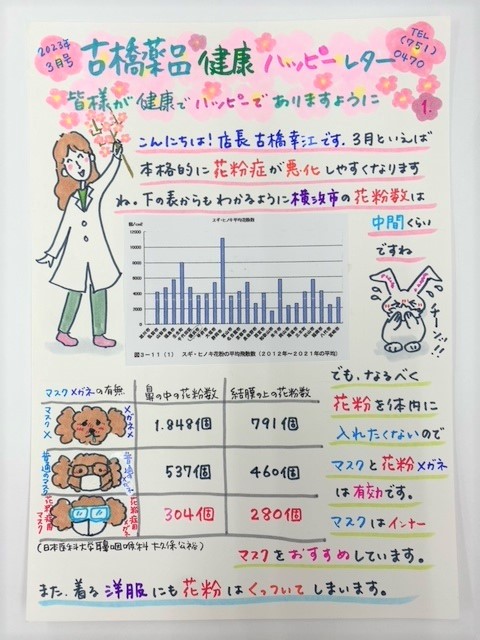 2023年
3月号
古橋薬品 健康 ハッピーレター
TEL
(751)
0470
皆様が健康でハッピーでありますように
1.
こんにちは!店長 古橋幸江です。3月といえば
本格的に花粉症が悪化しやすくなります
ね。下の表からもわかるように横浜市の花粉数は
中間くらい
ですね
スギ・ヒノキ平均飛散数
12000
10000
8000
6000
4000
2000
0
図3-11(1) スギ・ヒノキ花粉の平均飛散数(2012年~2021年の平均)
チーン!!
マスクメガネの有無
鼻の中の花粉数
結膜の上の花粉数
マスク×
メガネ×
1.848個
791個
普通のマスク
普通のメガネ
537個
460個
花粉症用マスク
花粉症用メガネ
304個
280個
(日本医科大学耳鼻咽喉科 大久保公裕)
でも、なるべく
花粉を体内に
入れたくないので
マスクと花粉メガネ
は有効です。
マスクはインナー
マスクをおすすめしています。
また、着る洋服にも花粉はくっついてしまいます。